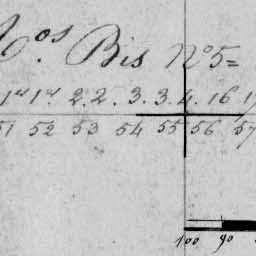 Nos. Bis No 5=
1er 1er 2. 2. 3. 3. 4. 16 17
51 52 53 54 55 56 57
100 90